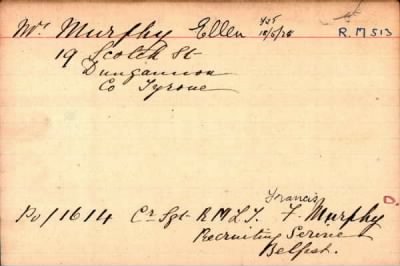 Mrs Murphy Ellen 10/5/20 R.M 513
19 Scotch St
Dungannon
Co Tyrone
Francis
Po/1614 Cr Sgt R M L I. F. Murphy
Recruiting Service
Belfast.